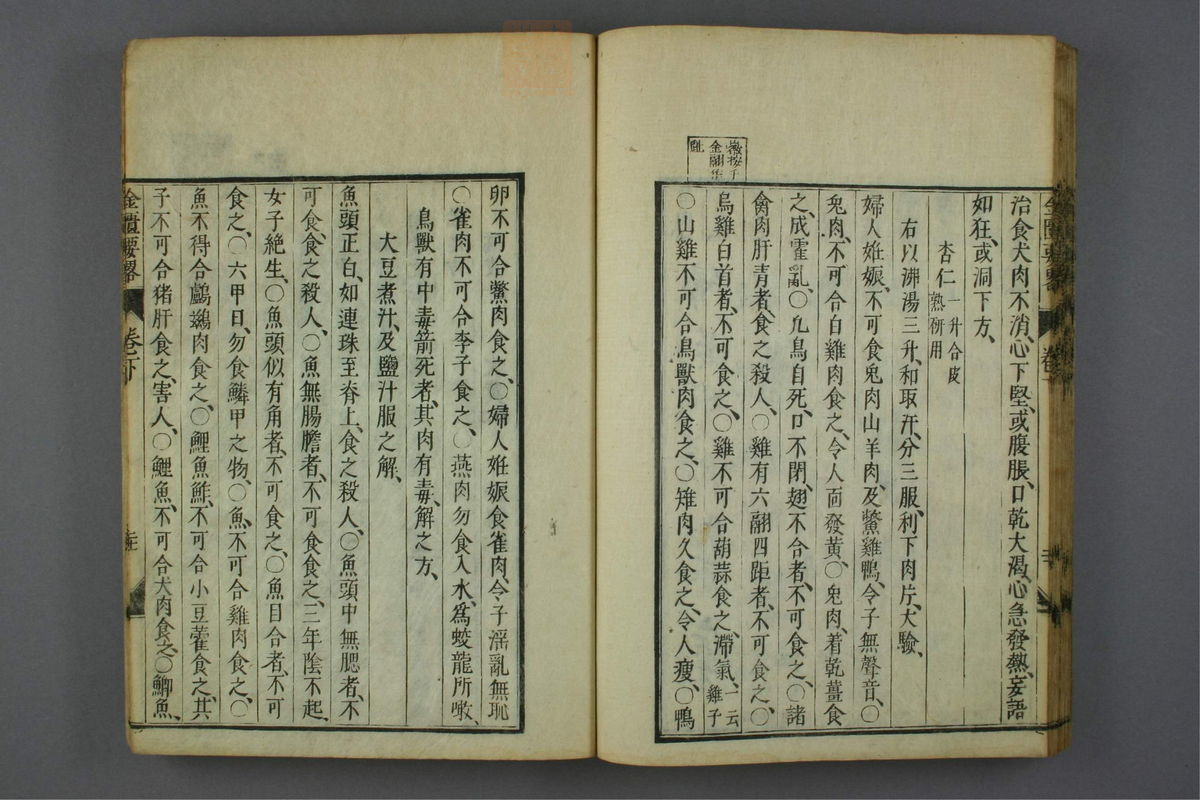 治食犬肉不消、心下堅、或腹脹、口乾大渴、心急發熱、妄語
如狂、或洞下方、
杏仁一升合皮熟研用
右以沸湯三升、和取汁、分三服、利下肉片、大驗、
婦人妊娠、不可食兔肉山羊肉、及鱉雞鴨、令子無聲音、○
兔肉、不可合白雞肉食之、令人面發黃、○兔肉、着乾薑食
之、成霍亂、○凡鳥自死、口不閉、翅不合者、不可食之、○諸
禽肉肝青者、食之殺人、○雞有六翮四距者、不可食之、○
烏雞白首者、不可食之、○雞不可合葫蒜食之、滯氣、一云雞子
○山雞不可合鳥獸肉食之、○雉肉久食之、令人瘦、○鴨
卵不可合鱉肉食之、○婦人妊娠食雀肉、令子淫亂無恥
○雀肉不可合李子食之、○燕肉勿食入水、爲蛟龍所噉、
鳥獸有中毒箭死者、其肉有毒、解之方、
大豆煮汁、及鹽汁服之解、
魚頭正白、如連珠至脊上、食之殺人、○魚頭中無腮者、不
可食、食之殺人、○魚無腸膽者、不可食食之、三年陰不起、
女子絶生、○魚頭似有角者、不可食之、○魚目合者、不可
食之、○六甲日、勿食鱗甲之物、○魚、不可合雞肉食之、○
魚不得合鸕鷀肉食之、○鯉魚鮓、不可合小豆藿食之、其
子不可合猪肝食之、害人、○鯉魚、不可合犬肉食之、○鯽魚、
金匱要畧
卷下